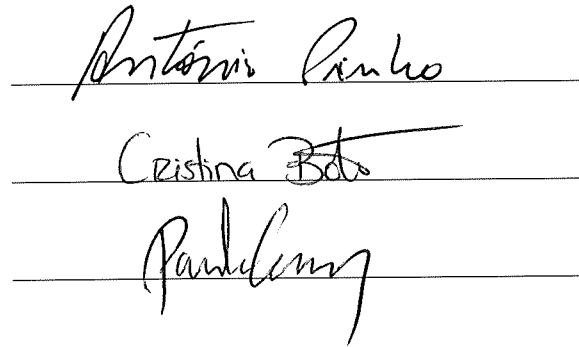 António Pinho
Cristina Boto
Paulo